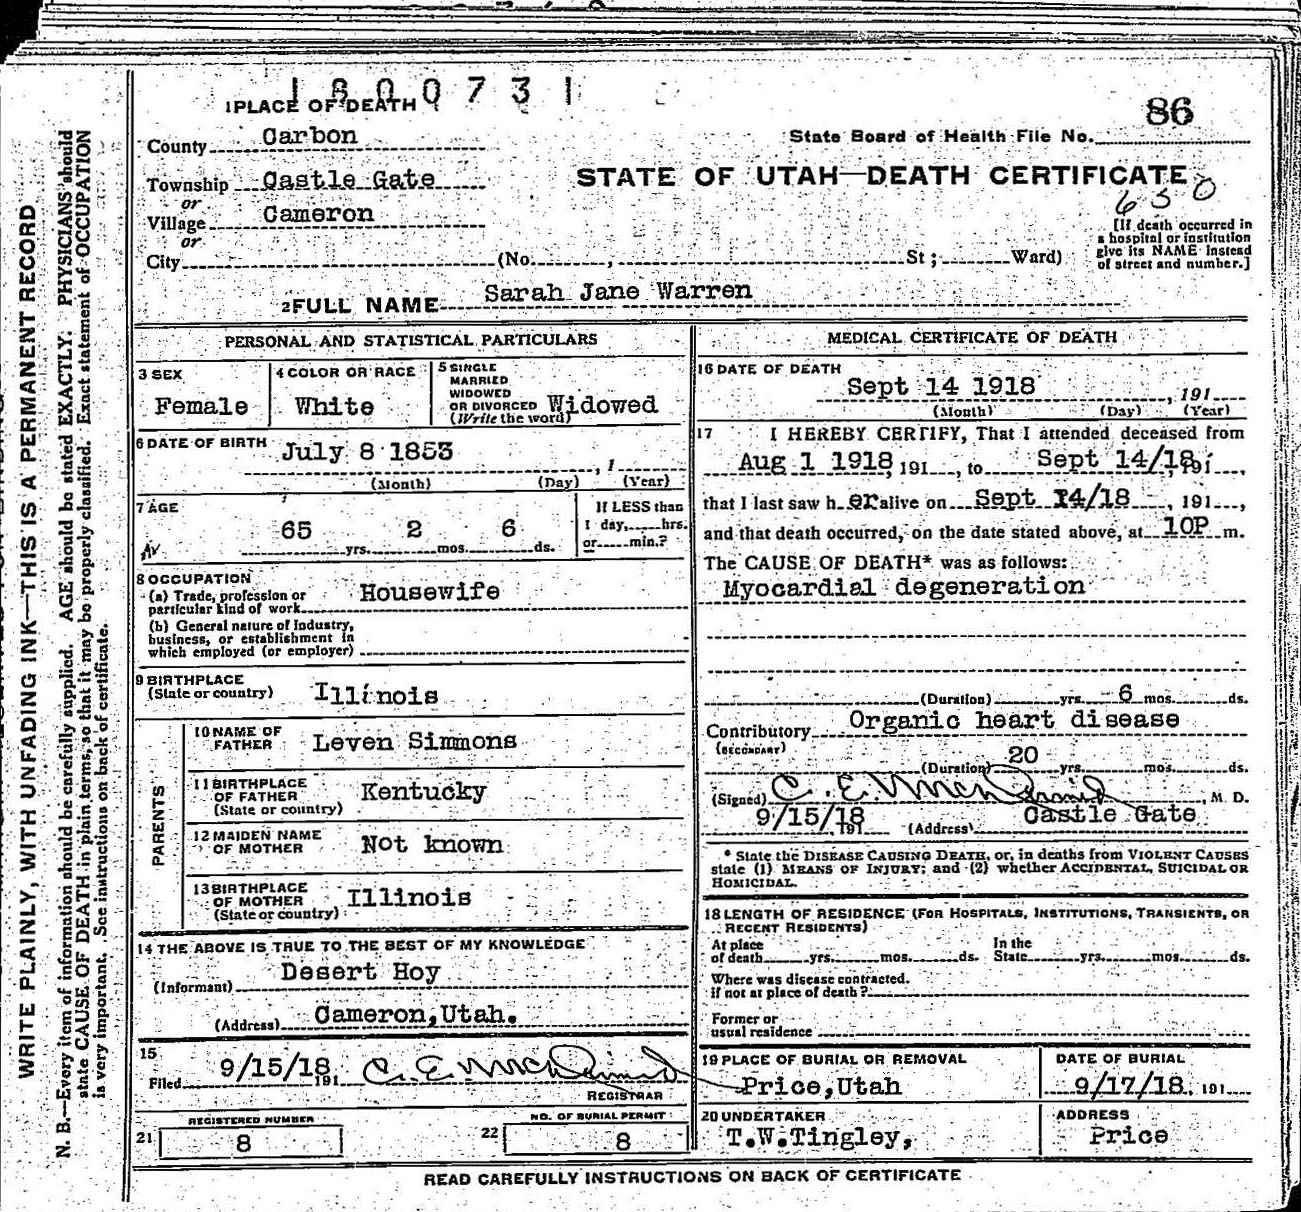 1800731
1 PLACE OF DEATH
86
State Board of Health File No.
County Carbon
STATE OF UTAH—DEATH CERTIFICATE
Township Castle Gate
or
650
Village Cameron
or
City (No. , St; Ward)
[If death occurred in
a hospital or institution
give its NAME instead
of street and number.]
2 FULL NAME Sarah Jane Warren
PERSONAL AND STATISTICAL PARTICULARS
3 SEX
Female
4 COLOR OR RACE
White
5 SINGLE
MARRIED
WIDOWED
OR DIVORCED Widowed
(Write the word)
6 DATE OF BIRTH July 8 1853
, 1
(Month) (Day) (Year)
7 AGE
65 yrs. 2 mos. 6 ds.
If LESS than
1 day, hrs.
or min.?
8 OCCUPATION
(a) Trade, profession or
particular kind of work Housewife
(b) General nature of Industry,
business, or establishment in
which employed (or employer)
9 BIRTHPLACE
(State or country) Illinois
PARENTS
10 NAME OF
FATHER Leven Simmons
11 BIRTHPLACE
OF FATHER Kentucky
(State or country)
12 MAIDEN NAME
OF MOTHER Not known
13 BIRTHPLACE
OF MOTHER Illinois
(State or country)
14 THE ABOVE IS TRUE TO THE BEST OF MY KNOWLEDGE
(Informant) Desert Hoy
(Address) Cameron,Utah.
15
Filed 9/15/18 191 C. E. McDermid
REGISTRAR
REGISTERED NUMBER
21 8
NO. OF BURIAL PERMIT
22 8
MEDICAL CERTIFICATE OF DEATH
16 DATE OF DEATH
Sept 14 1918 , 191
(Month) (Day) (Year)
17 I HEREBY CERTIFY, That I attended deceased from
Aug 1 1918, 191 , to Sept 14/18, 191 ,
that I last saw h er alive on Sept 14/18 , 191 ,
and that death occurred, on the date stated above, at 10P m.
The CAUSE OF DEATH* was as follows:
Myocardial degeneration
(Duration) yrs. 6 mos. ds.
Contributory Organic heart disease
(SECONDARY)
(Duration) 20 yrs. mos. ds.
(Signed) C. E. McDermid, M. D.
9/15/18 191 (Address) Castle Gate
* State the DISEASE CAUSING DEATH, or, in deaths from VIOLENT CAUSES
state (1) MEANS OF INJURY; and (2) whether ACCIDENTAL, SUICIDAL OR
HOMICIDAL.
18 LENGTH OF RESIDENCE (FOR HOSPITALS, INSTITUTIONS, TRANSIENTS, OR
RECENT RESIDENTS)
At place In the
of death yrs. mos. ds. State yrs. mos. ds.
Where was disease contracted.
if not at place of death?
Former or
usual residence
19 PLACE OF BURIAL OR REMOVAL
Price,Utah
DATE OF BURIAL
9/17/18, 191
20 UNDERTAKER
T.W.Tingley,
ADDRESS
Price
READ CAREFULLY INSTRUCTIONS ON BACK OF CERTIFICATE
WRITE PLAINLY, WITH UNFADING INK—THIS IS A PERMANENT RECORD
N. B.—Every item of information should be carefully supplied. AGE should be stated EXACTLY. PHYSICIANS should
state CAUSE OF DEATH in plain terms, so that it may be properly classified. Exact statement of OCCUPATION
is very important. See instructions on back of certificate.